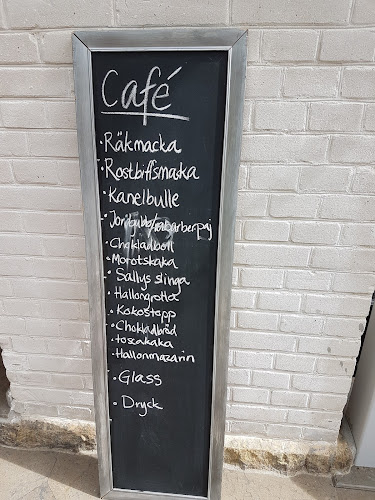 Café
·Räkmacka
·Rostbiffsmacka
·Kanelbulle
·Jordgubb/rabarberpaj
·Chokladboll
·Morotskaka
·Sallys slinga
·Hallongrotta
·Kokostopp
·Chokladbröd
·toscakaka
·Hallonmazarin
·Glass
·Dryck